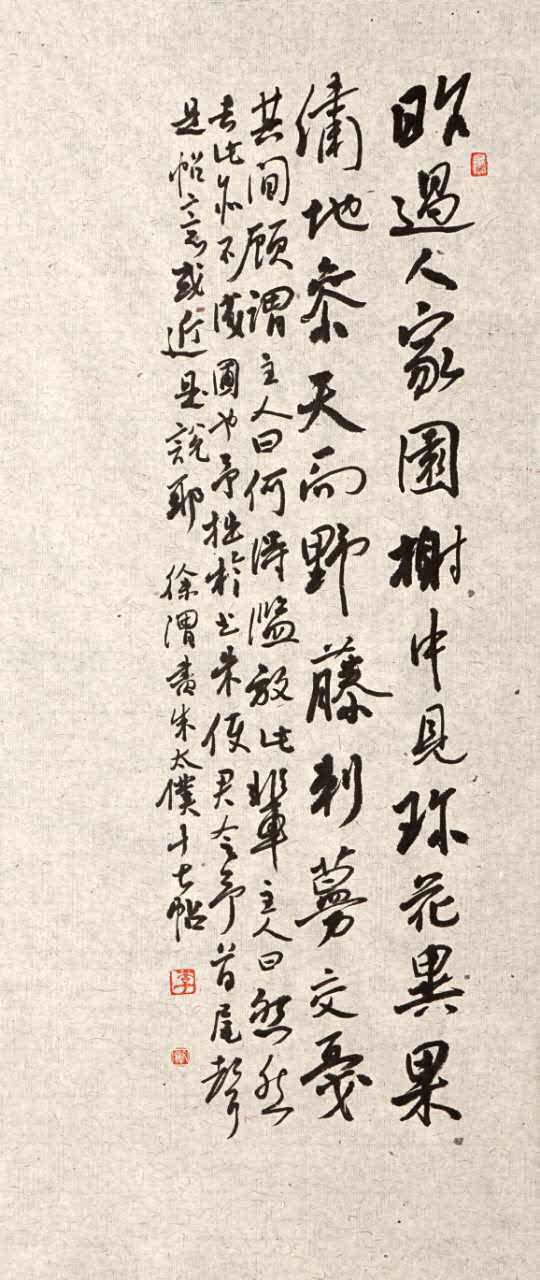 昨過人家園榭中見珍花異果
繡地參天而野藤刺蔓交戞
其間顧謂主人曰何得濫放此輩主人曰然然
去此亦不成圃也予拙於書朱使君令予首尾
是帖意或近是說耶 徐渭書朱太僕十七帖